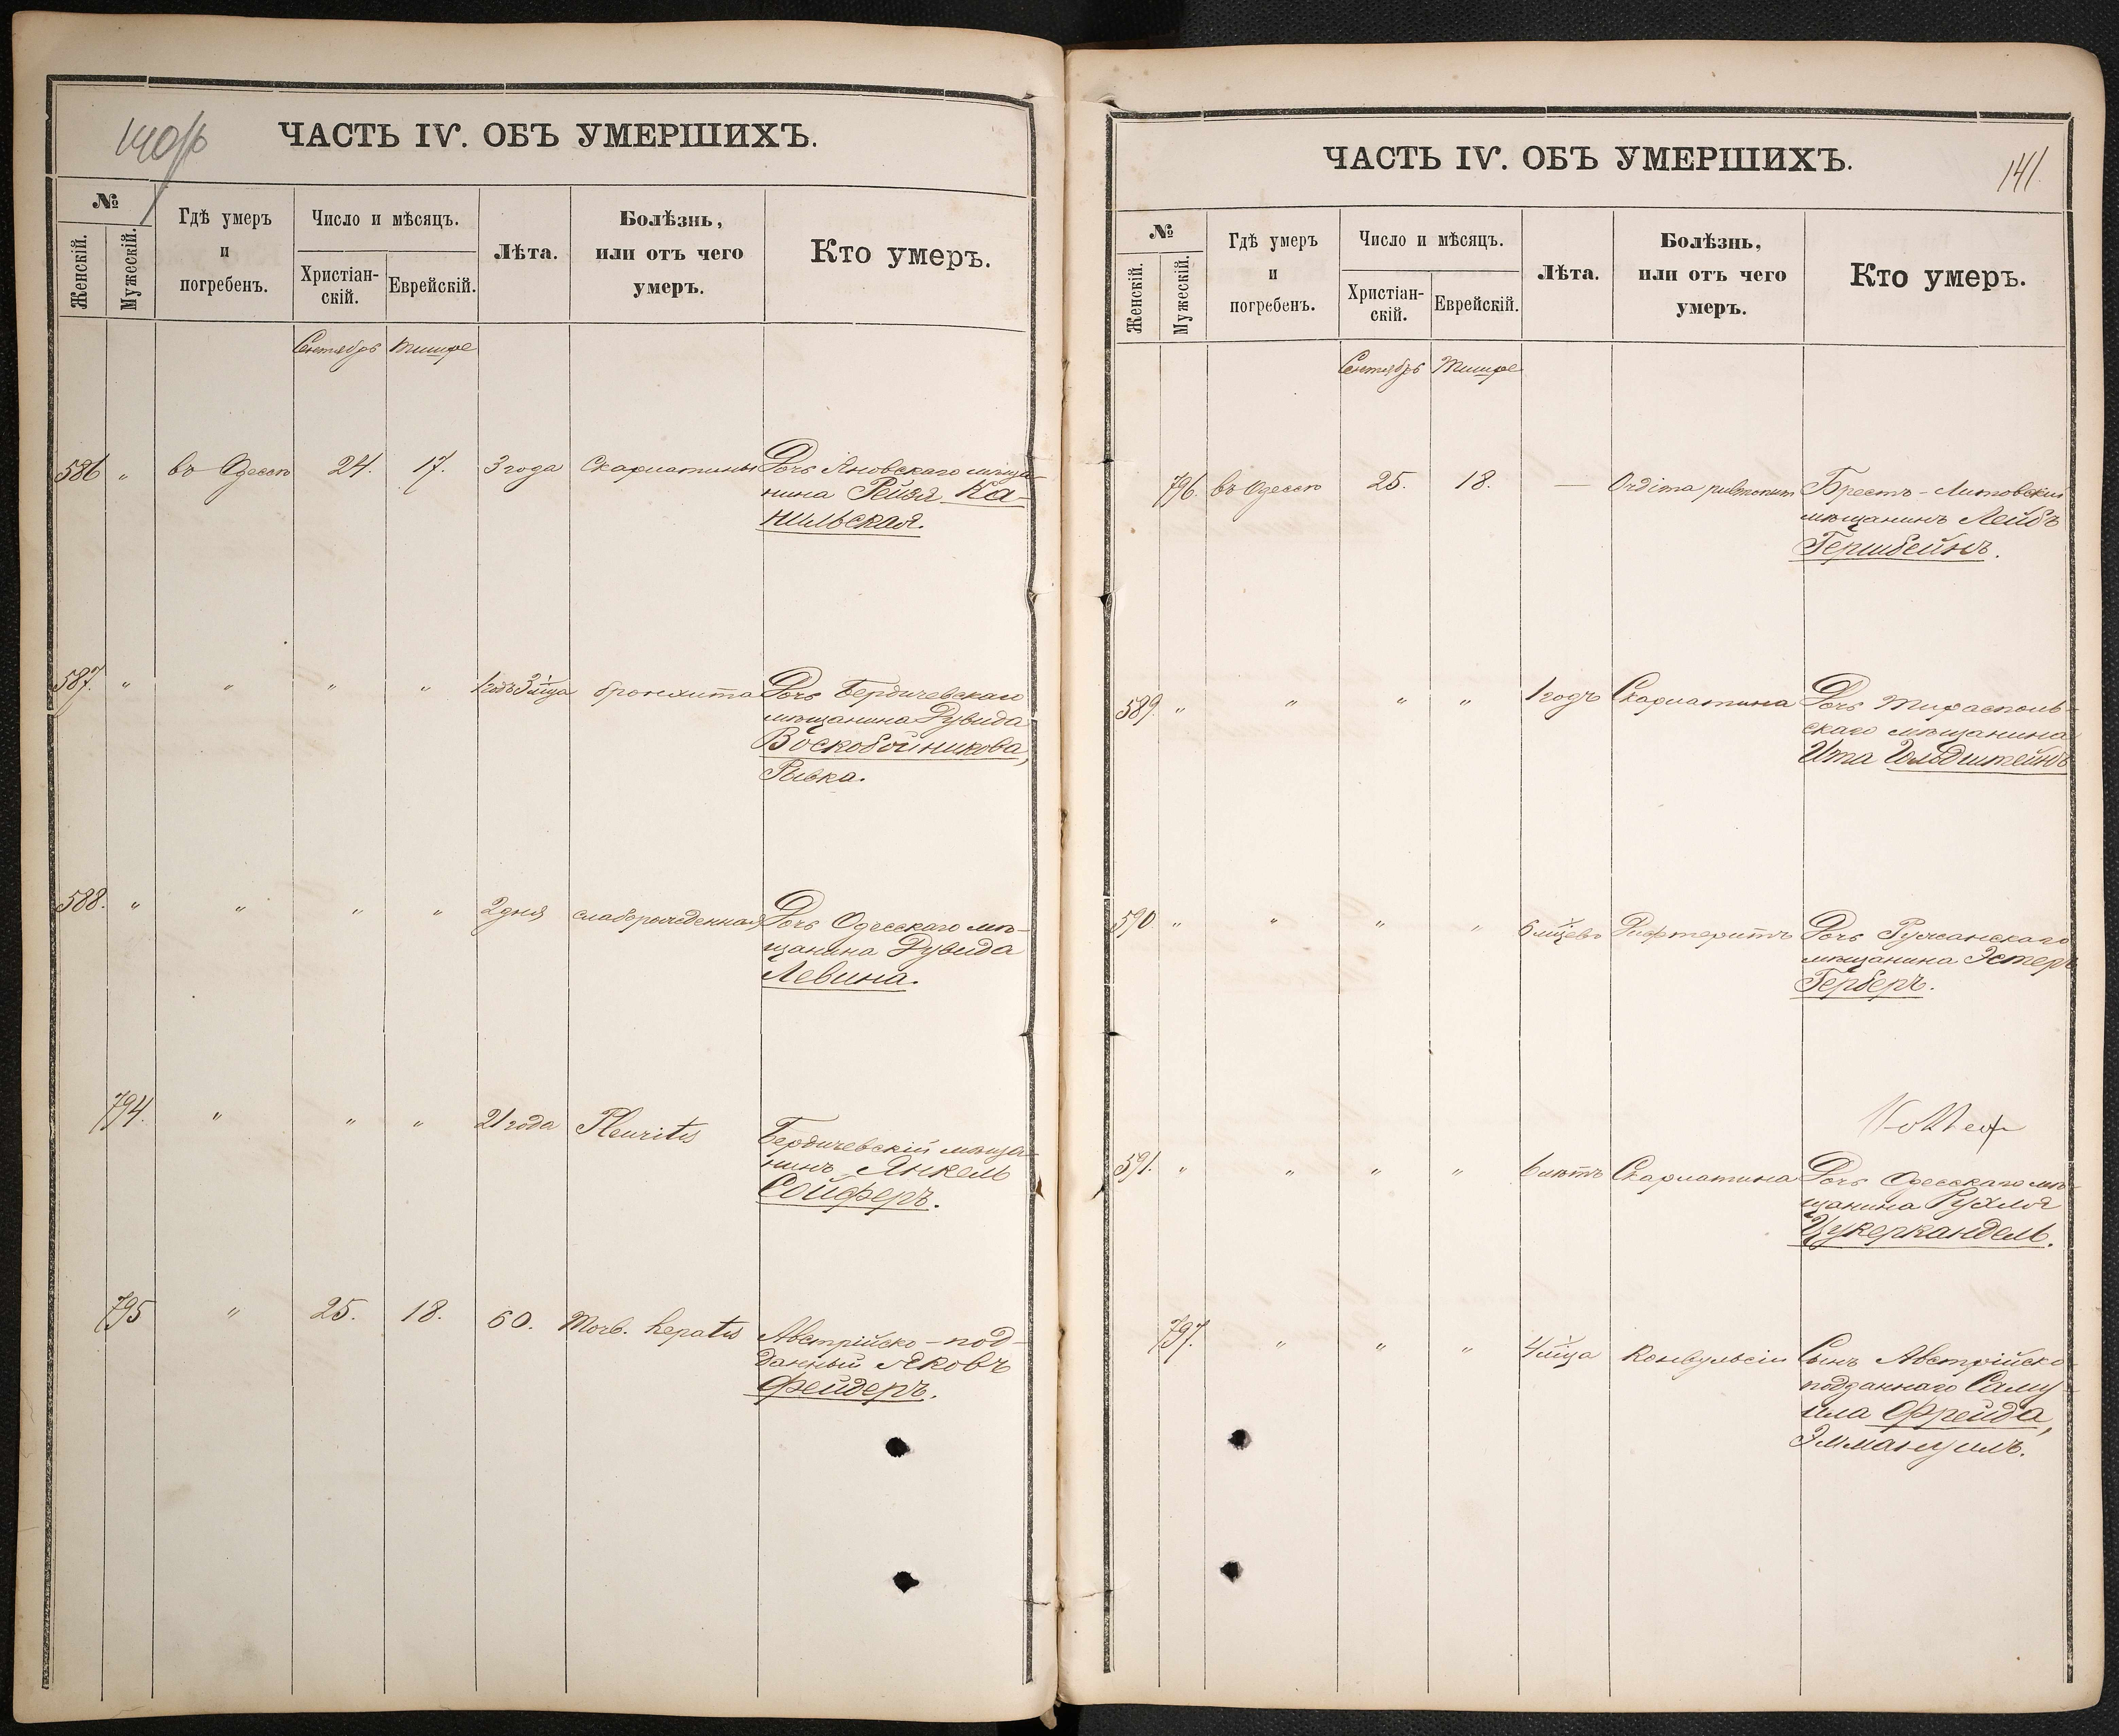 140/об
ЧАСТЬ IV. ОБЪ УМЕРШИХЪ.
№
Женскій.
Мужескій.
Гдѣ умеръ
и
погребенъ.
Число и мѣсяцъ.
Христіан-
скій.
Еврейскій.
Лѣта.
Болѣзнь,
или отъ чего
умеръ.
Кто умеръ.
Сентябрь Тишре
586 " въ Одессѣ 24. 17. 3 года Скарлатины Дочь Яновскаго мѣща-
нина Рейзя Ка-
нильская.
587. " " " " 1 годъ 3 м-ца бронхита Дочь Бердичевскаго
мѣщанина Дувида
Воскобойникова,
Рывка.
588. " " " " 2 дня слаборожденная Дочь Одесскаго мѣ-
щанина Дувида
Левина.
794. " " " 21 года Pleuritis Бердичевскій мѣща-
нинъ Янкель
Сойферъ.
795 " 25. 18. 60. Morb. hepatis Австрійско-под-
данный Яковъ
Фейдеръ.
ЧАСТЬ IV. ОБЪ УМЕРШИХЪ.
141.
№
Женскій.
Мужескій.
Гдѣ умеръ
и
погребенъ.
Число и мѣсяцъ.
Христіан-
скій.
Еврейскій.
Лѣта.
Болѣзнь,
или отъ чего
умеръ.
Кто умеръ.
Сентябрь Тишре
796. въ Одессѣ 25. 18. — pulmonum Брестъ-Литовскій
мѣщанинъ Лейбъ
Гершбейнъ.
589. " " " " 1 годъ Скарлатина Дочь Тирасполь-
скаго мѣщанина
Ита Гольдштейнъ
590 " " " " 6 м-цевъ Дифтеритъ Дочь Ружанскаго
мѣщанина Эстеръ
Герберъ.
591. " " " " 6 лѣтъ Скарлатина Дочь Одесскаго мѣ-
щанина Рухля
Цукеркандель.
797. " " " 4 м-ца Конвульсіи Сынъ Австрійско-
подданнаго Саму-
ила Фрейда,
Эммануилъ.